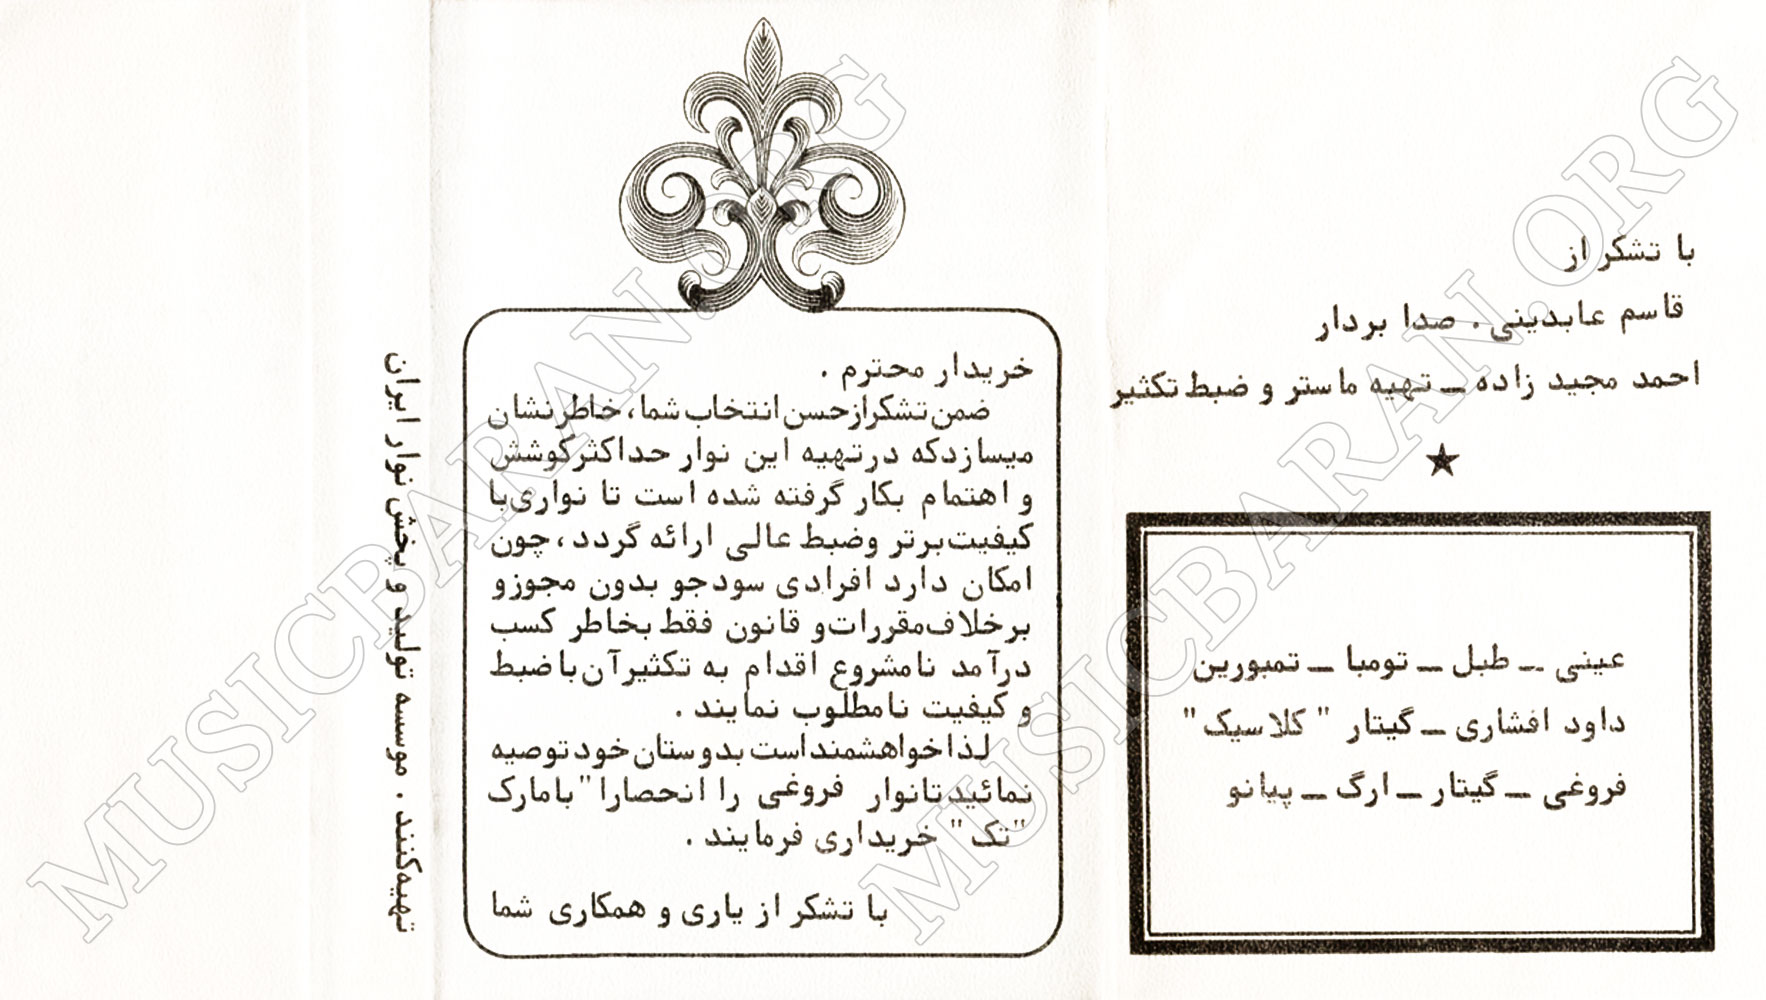 با تشکر از
قاسم عابدینی . صدا بردار
احمد مجید زاده ــ تهیه ماستر و ضبط تکثیر
عینی ــ طبل ــ تومبا ــ تمبورین
داود افشاری ــ گیتار " کلاسیک "
فروغی ــ گیتار ــ ارگ ــ پیانو
خریدار محترم .
ضمن تشکر از حسن انتخاب شما ، خاطر نشان
میسازد که در تهیه این نوار حداکثر کوشش
و اهتمام بکار گرفته شده است تا نواری با
کیفیت برتر و ضبط عالی ارائه گردد ، چون
امکان دارد افرادی سودجو بدون مجوز و
برخلاف مقررات و قانون فقط بخاطر کسب
درآمد نامشروع اقدام به تکثیر آن با ضبط
و کیفیت نامطلوب نمایند .
لذا خواهشمند است بدوستان خود توصیه
نمائید تا نوار فروغی را انحصارا " با مارک
" تک " خریداری فرمایند .
با تشکر از یاری و همکاری شما
تهیه‌کننده . موسسه تولید و پخش نوار ایران
MUSICBARAN.ORG
MUSICBARAN.ORG